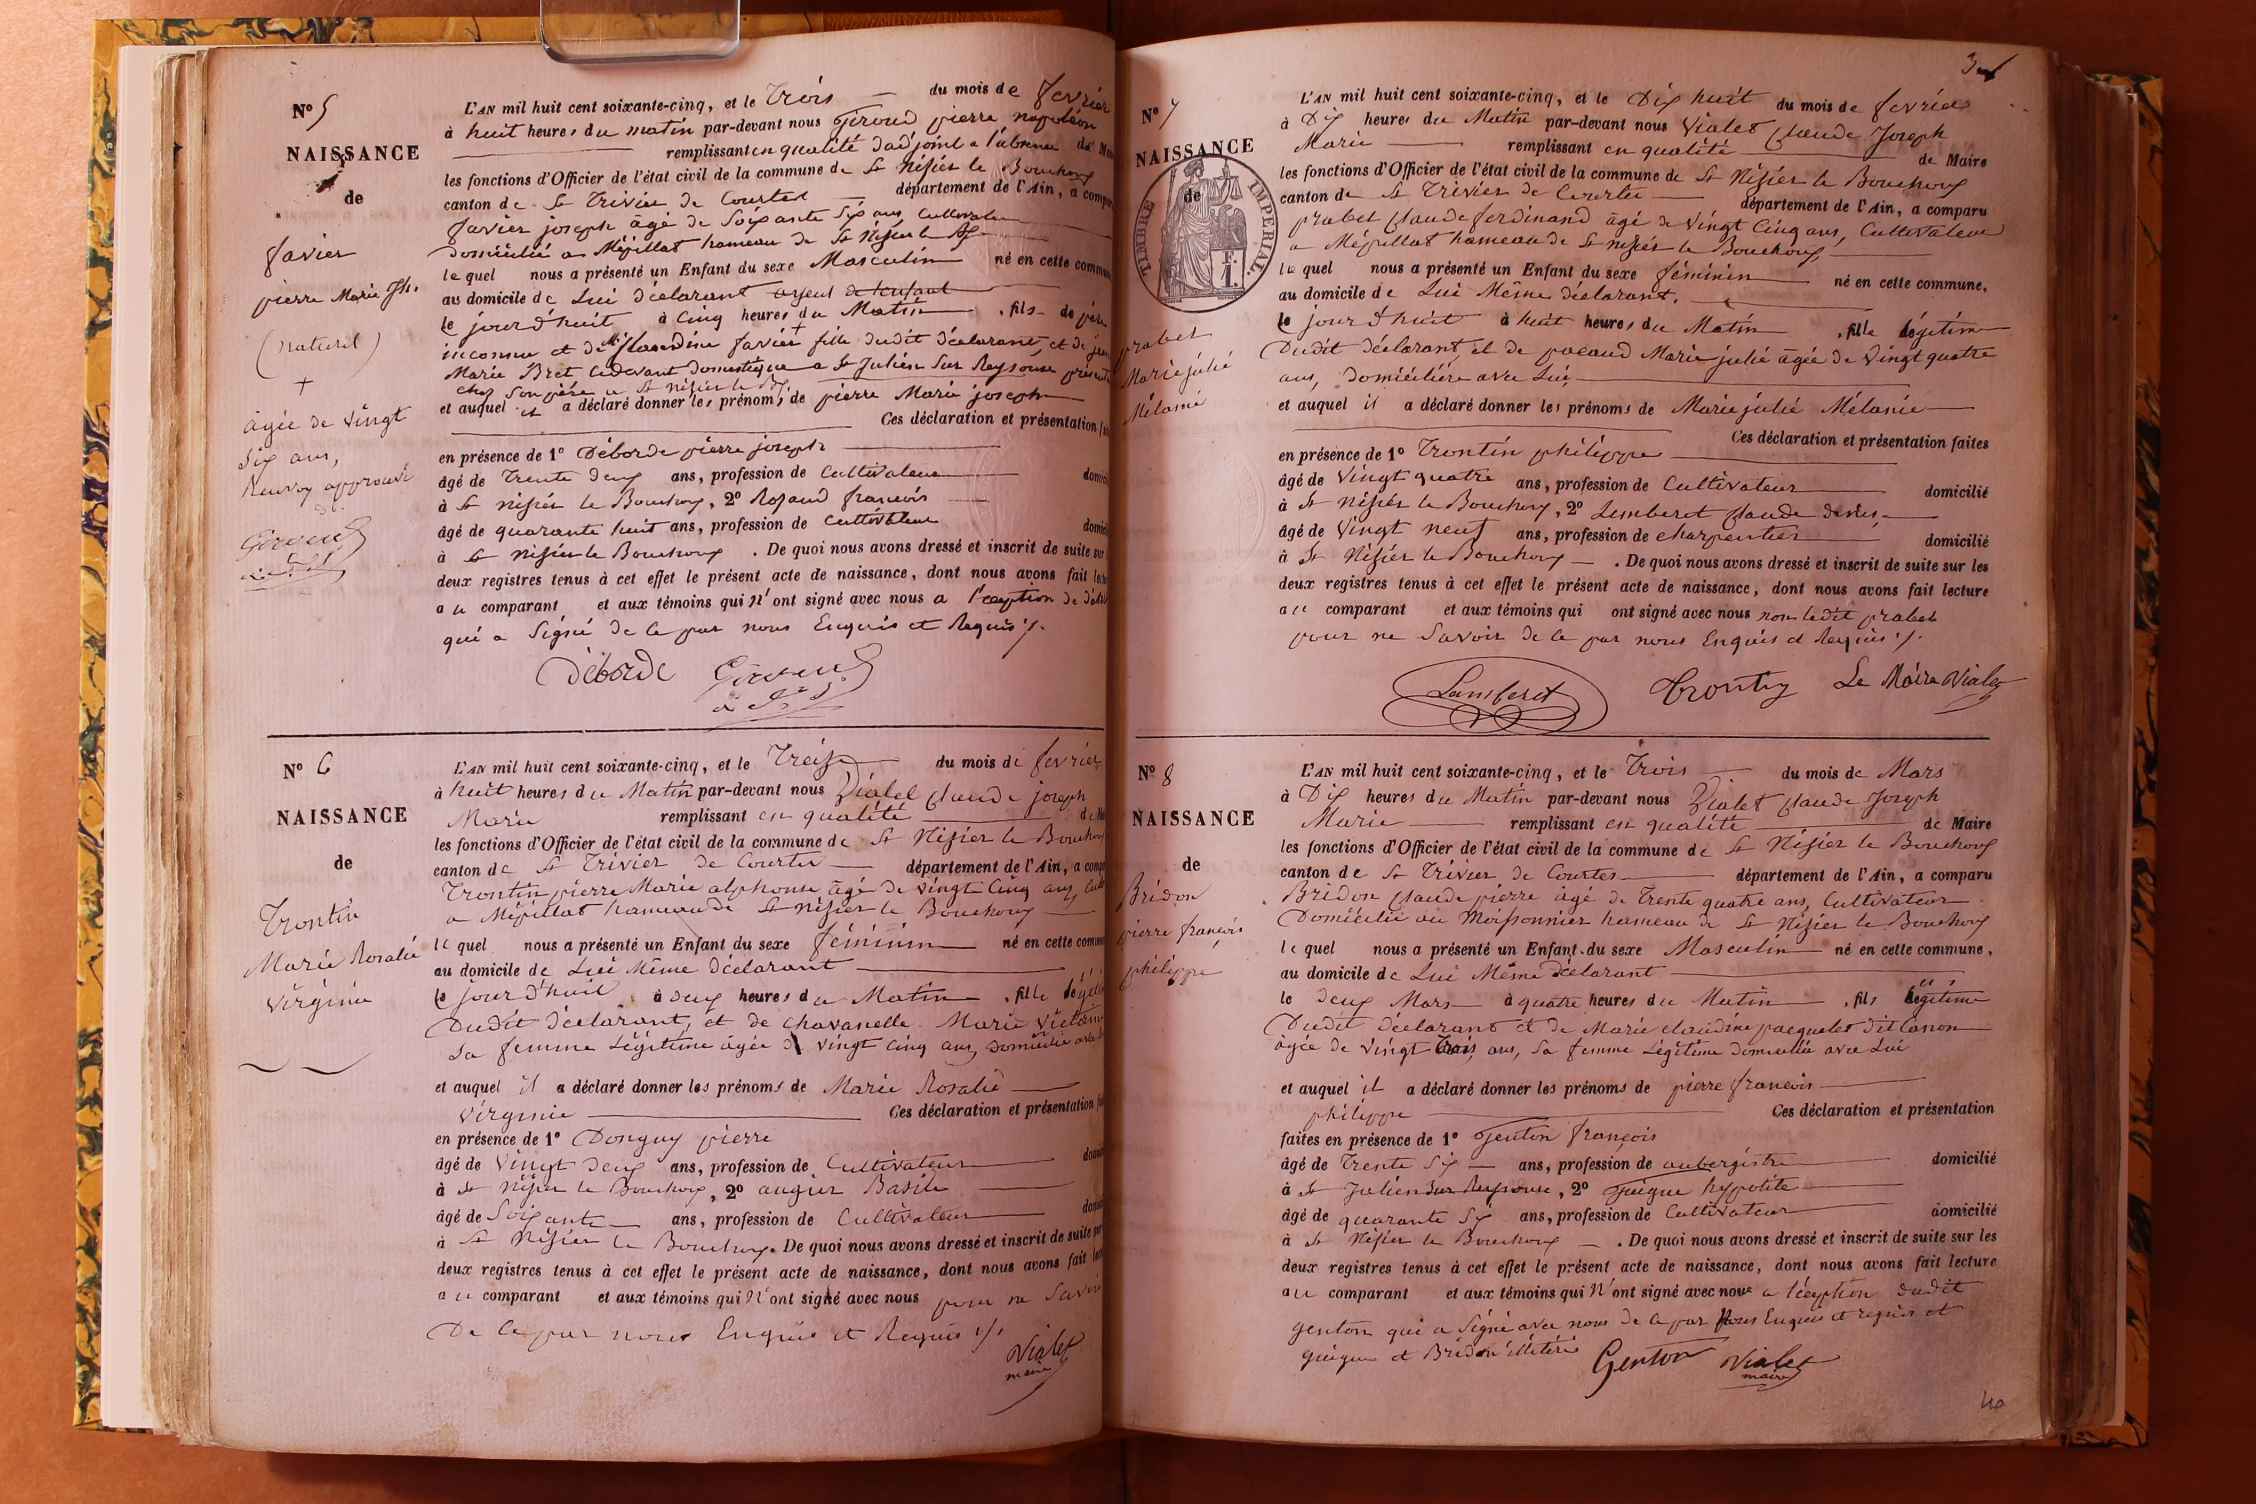 Nº 5
NAISSANCE
de
favier
pierre Marie Jh.
(naturel)
+
âgée de vingt
Six ans,
Renvoy approuvé
L'AN mil huit cent soixante-cinq, et le Trois du mois de fevrier
à huit heures du matin par-devant nous Giroud pierre napoléon
remplissant en qualité d'adjoint a l'absence du
les fonctions d'Officier de l'état civil de la commune de St Nisier le Bouchoux
canton de St Trivier de Courtes département de l'Ain, a
favier joseph âgé de Soixante Six ans, Cultivateur
Domicilié a Mépillat hameau de St Nisier le
le quel nous a présenté un Enfant du sexe Masculin né en cette
au domicile de Lui déclarant ayeul de l'enfant
le jour d'huit à Cinq heures du Matin, fils de père
inconnu et de Claudine favier fille dudit déclarant, et de
Marie Bret Cidevant domestique a St Julien Sur Reyssouze
chez Son père a St nisier le
et auquel il a déclaré donner les prénoms de pierre Marie joseph
Ces déclaration et présentation
en présence de 1º Déborde pierre joseph
âgé de Trente deux ans, profession de Cultivateur
à St nisier le Bouchoux, 2º Rozand francois
âgé de quarante huit ans, profession de cultivateur
à St nisier le Bouchoux. De quoi nous avons dressé et inscrit de suite sur
deux registres tenus à cet effet le présent acte de naissance, dont nous avons fait
au comparant et aux témoins qui n'ont signé avec nous a l'exception de
qui a Signé de ce par nous Enquis et Requis ./.
Déborde Giroud
Nº 6
NAISSANCE
de
Trontin
Marie Rosalie
Virginie
L'AN mil huit cent soixante-cinq, et le Treize du mois de fevrier
à huit heures du Matin par-devant nous Vialet Claude joseph
Marie remplissant en qualité
les fonctions d'Officier de l'état civil de la commune de St Nisier le Bouchoux
canton de St Trivier de Courtes département de l'Ain, a
Trontin pierre Marie alphonse âgé de vingt Cinq ans
a Mépillat hameau de St nisier le Bouchoux
le quel nous a présenté un Enfant du sexe féminin né en cette
au domicile de Lui Même déclarant
le jour d'huit à deux heures du Matin, fille
Dudit déclarant, et de chavanelle Marie
Sa femme Légitime âgée de vingt cinq ans, Domiciliée
et auquel il a déclaré donner les prénoms de Marie Rosalie
Virginie Ces déclaration et présentation
en présence de 1º Donguy pierre
âgé de Vingt deux ans, profession de Cultivateur
à St Nisier le Bouchoux, 2º augier Basile
âgé de Soixante ans, profession de Cultivateur
à St Nisier le Bouchoux. De quoi nous avons dressé et inscrit de suite
deux registres tenus à cet effet le présent acte de naissance, dont nous avons fait
au comparant et aux témoins qui n'ont signé avec nous pour ne Savoir
De ce par nous Enquis et Requis ./.
Vialet
maire
Nº 7
NAISSANCE
de
TIMBRE IMPERIAL.
F. 1.
prabel
Marie julie
Mélanie
L'AN mil huit cent soixante-cinq, et le Dix huit du mois de fevrier
à Dix heures du Matin par-devant nous Vialet Claude Joseph
Marie remplissant en qualité de Maire
les fonctions d'Officier de l'état civil de la commune de St Nisier le Bouchoux
canton de St Trivier de Courtes département de l'Ain, a comparu
prabel Claude ferdinand âgé de Vingt Cinq ans, Cultivateur
a Mépillat hameau de St nisier le Bouchoux,
le quel nous a présenté un Enfant du sexe féminin né en cette commune,
au domicile de Lui Même déclarant.
le jour d'huit à huit heures du Matin, fille légitime
Dudit déclarant, et de pacaud Marie julie âgée de Vingt quatre
ans, Domiciliée avec Lui
et auquel il a déclaré donner les prénoms de Marie julie Mélanie
Ces déclaration et présentation faites
en présence de 1º Trontin philippe
âgé de Vingt quatre ans, profession de Cultivateur domicilié
à St Nisier le Bouchoux, 2º Lemberot Claude denis
âgé de Vingt neuf ans, profession de charpentier domicilié
à St Nisier le Bouchoux. De quoi nous avons dressé et inscrit de suite sur les
deux registres tenus à cet effet le présent acte de naissance, dont nous avons fait lecture
au comparant et aux témoins qui ont signé avec nous non ledit prabel
pour ne Savoir de ce par nous Enquis et Requis ./.
Lamberet Trontin Le Maire Vialet
Nº 8
NAISSANCE
de
Bridon
pierre françois
philippe
L'AN mil huit cent soixante-cinq, et le Trois du mois de Mars
à Dix heures du Matin par-devant nous Vialet Claude Joseph
Marie remplissant en qualité de Maire
les fonctions d'Officier de l'état civil de la commune de St Nisier le Bouchoux
canton de St Trivier de Courtes département de l'Ain, a comparu
Bridon Claude pierre âgé de Trente quatre ans, Cultivateur
Domicilié au Moissonnier hameau de St Nisier le Bouchoux
le quel nous a présenté un Enfant du sexe Masculin né en cette commune,
au domicile de Lui Même déclarant
le deux Mars à quatre heures du Matin, fils légitime
Dudit déclarant et de Marie claudine pacquelet dit Canon
âgée de Vingt trois ans, Sa femme Légitime Domiciliée avec Lui
et auquel il a déclaré donner les prénoms de pierre francois
philippe Ces déclaration et présentation
faites en présence de 1º Genton françois
âgé de Trente Six ans, profession de aubergiste domicilié
à St Julien Sur Reyssouze, 2º guigue hypolite
âgé de quarante Six ans, profession de Cultivateur domicilié
à St Nisier le Bouchoux. De quoi nous avons dressé et inscrit de suite sur les
deux registres tenus à cet effet le présent acte de naissance, dont nous avons fait lecture
au comparant et aux témoins qui n'ont signé avec nous a l'exeption dudit
genton qui a Signé avec nous de ce par Nous Enquis et requis et
guigue et Bridon illetéré Genton Vialet
maire